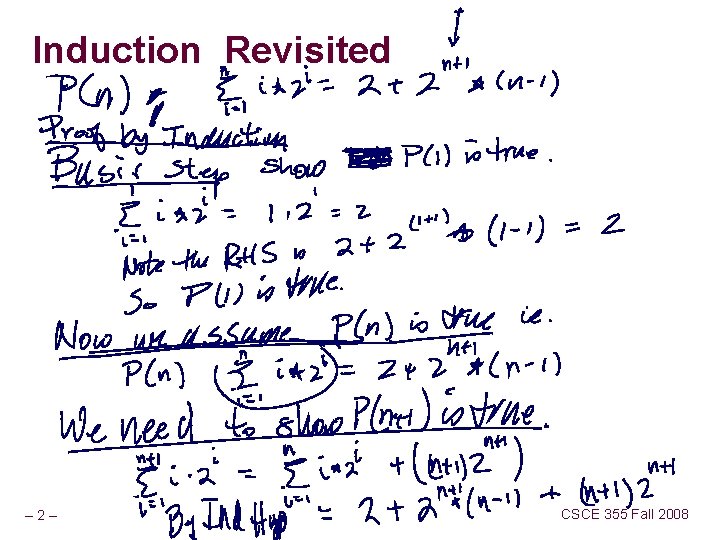 Induction Revisited
P(n), \sum_{i=1}^{n} i*2^i = 2 + 2^{n+1} * (n-1)
Proof by Induction
Basis step show P(1) is true.
\sum_{i=1}^{1} i*2^i = 1·2^1 = 2
Note the RHS is 2 + 2^{(1+1)} * (1-1) = 2
So P(1) is true.
Now we assume P(n) is true ie.
P(n) \sum_{i=1}^{n} i*2^i = 2 + 2^{n+1} * (n-1)
We need to show P(n+1) is true.
\sum_{i=1}^{n+1} i·2^i = \sum_{i=1}^{n} i*2^i + ((n+1)2^{n+1})
By Ind Hyp = 2 + 2^{n+1} * (n-1) + (n+1)2^{n+1}
– 2 –
CSCE 355 Fall 2008